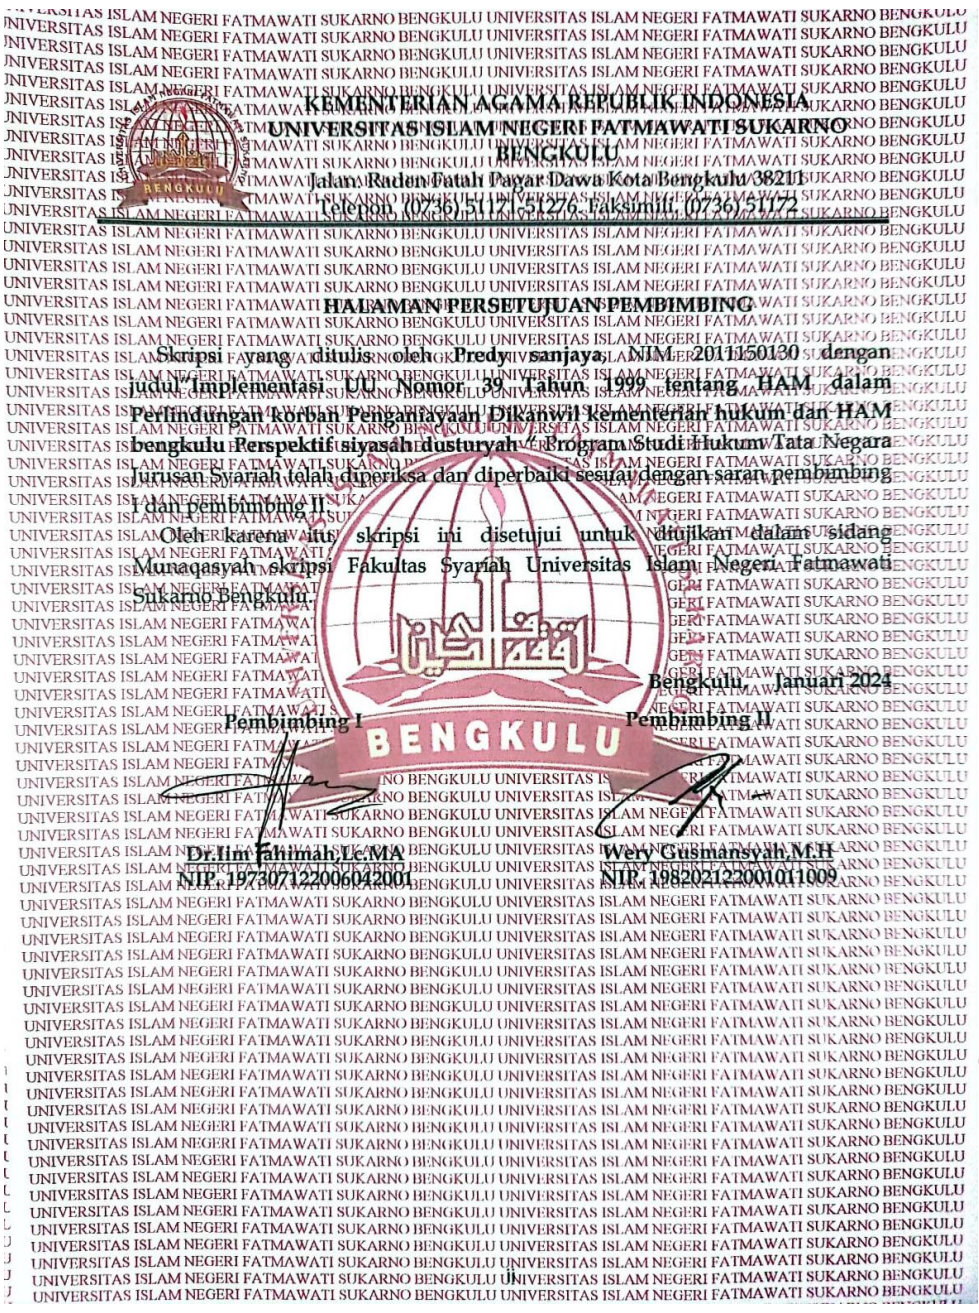 KEMENTERIAN AGAMA REPUBLIK INDONESIA
UNIVERSITAS ISLAM NEGERI FATMAWATI SUKARNO
BENGKULU
Jalan. Raden Fatah Pagar Dawa Kota Bengkulu 38211
Telepon. (0736) 51171-51276. Faksimili. (0736) 51172
BENGKULU
HALAMAN PERSETUJUAN PEMBIMBING
Skripsi yang ditulis oleh Predy sanjaya, NIM 2011150130 dengan
judul"Implementasi UU Nomor 39 Tahun 1999 tentang HAM dalam
Perlindungan korban Penganiayaan Dikanwil kementerian hukum dan HAM
bengkulu Perspektif siyasah dusturyah " Program Studi Hukum Tata Negara
Jurusan Syariah telah diperiksa dan diperbaiki sesuai dengan saran pembimbing
I dan pembimbing II.
Oleh karena itu, skripsi ini disetujui untuk diujikan dalam sidang
Munaqasyah skripsi Fakultas Syariah Universitas Islam Negeri Fatmawati
Sukarno Bengkulu.
BENGKULU
Bengkulu, Januari 2024
Pembimbing I Pembimbing II
Dr.Iim Fahimah,Lc,MA Wery Gusmansyah,M.H
NIP. 197307122006042001 NIP. 198202122001011009
ii